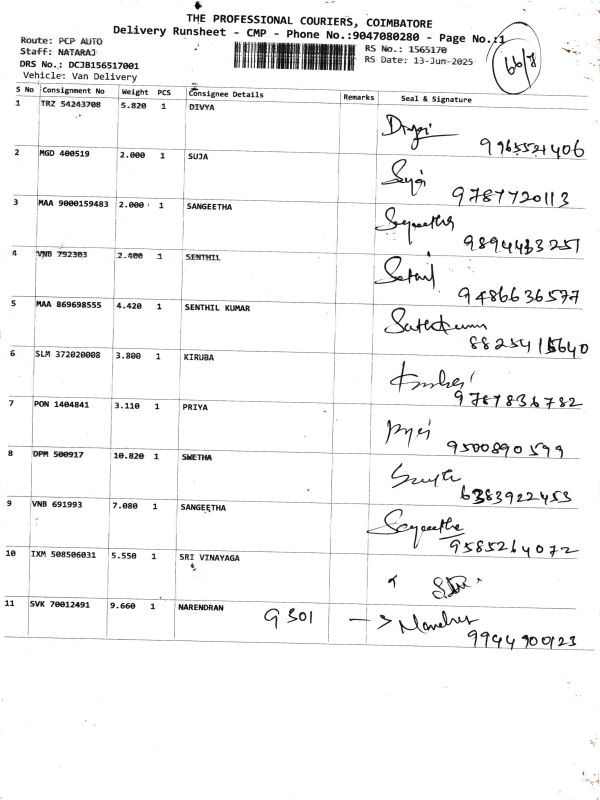 THE PROFESSIONAL COURIERS, COIMBATORE
Delivery Runsheet - CMP - Phone No.:9047080280 - Page No.:1
66/8
Route: PCP AUTO
Staff: NATARAJ
DRS No.: DCJB156517001
Vehicle: Van Delivery
RS No.: 1565170
RS Date: 13-Jun-2025
S No Consignment No Weight PCS Consignee Details Remarks Seal & Signature
1 TRZ 54243708 5.820 1 DIVYA
9965521406
2 MGD 400519 2.000 1 SUJA
9787720113
3 MAA 9000159483 2.000 1 SANGEETHA
Sangeetha
9894413251
4 VNB 792303 2.400 1 SENTHIL
9486636577
5 MAA 869698555 4.420 1 SENTHIL KUMAR
6 SLM 372020008 3.800 1 KIRUBA
9787836782
7 PON 1404841 3.110 1 PRIYA
9500890599
8 DPM 500917 10.820 1 SWETHA
6383922453
9 VNB 691993 7.080 1 SANGEETHA
Sangeetha
9585264072
10 IXM 508506031 5.550 1 SRI VINAYAGA
11 SVK 70012491 9.660 1 NARENDRAN G 301
9944900123